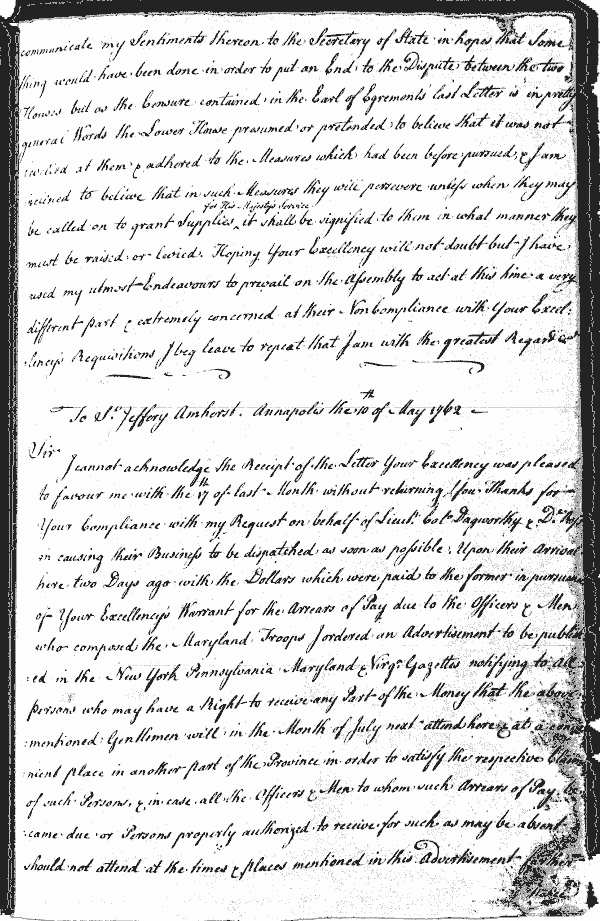 communicate my Sentiments thereon to the Secretary of State in hopes that Some
thing would have been done in order to put an End to the Dispute between the two
Houses but as the Censure contained in the Earl of Egremonts last Letter is in pretty
general Words the Lower House presumed or pretended to believe that it was not
levelled at them & adhered to the Measures which had been before pursued, & I am
inclined to believe that in such Measures they will persevere unless when they may
for His Majesty's Service
be called on to grant Supplies ^ it shall be signified to them in what manner they
must be raised or levied. Hoping Your Excellency will not doubt but I have
used my utmost Endeavours to prevail on the Assembly to act at this time a very
different part & extremely concerned at their NonCompliance with Your Excel:
:lency's Requisitions I beg leave to repeat that I am with the greatest Regard &c
To Sr. Jeffery Amherst. Annapolis the 10th of May 1762
Sir
I cannot acknowledge the Receipt of the Letter Your Excellency was pleased
to favour me with the 17th of last Month without returning You Thanks for
Your Compliance with my Request on behalf of Lieut. Colo. Dagworthy & Dr. Ross
in causing their Business to be dispatched as soon as possible; Upon their Arrival
here two Days ago with the Dollars which were paid to the former in pursuance
of Your Excellency's Warrant for the Arrears of Pay due to the Officers & Men
who composed the Maryland Troops I ordered an Advertisement to be publish
:ed in the New York Pennsylvania Maryland & Virga. Gazettes notifying to All
Persons who may have a Right to receive any Part of the Money that the above
:mentioned Gentlemen will in the Month of July next attend here & at a conve
:nient place in another part of the Province in order to satisfy the respective Claims
of such Persons, & in case all the Officers & Men to whom such Arrears of Pay be
:came due or Persons properly authorized to receive for such as may be absent
should not attend at the times & places mentioned in this Advertisement further